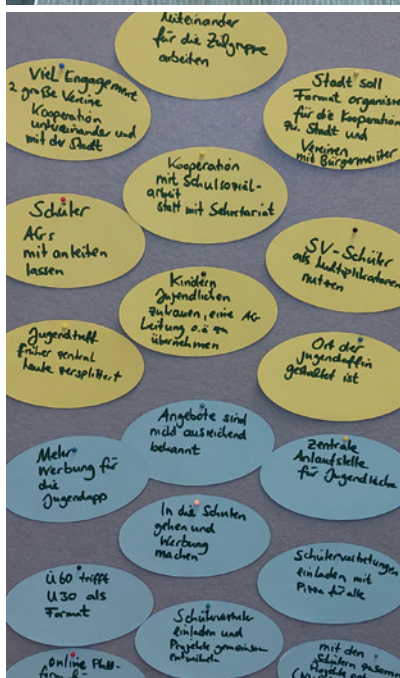 Miteinander
für die Zielgruppe
arbeiten
Viel Engagement
2 große Vereine
Kooperation
untereinander und
mit der Stadt
Stadt soll
Format organisie
für die Kooperation
zw. Stadt und
Vereinen
mit Bürgermeister
Kooperation
mit Schulsozial-
arbeit
statt mit Sekretariat
Schüler
AGs
mit anleiten
lassen
SV-Schüler
als Multiplikatoren
nutzen
Kindern
Jugendlichen
zutrauen, eine AG
Leitung o.ä. zu
übernehmen
Jugendtreff
früher zentral
heute zersplittert
Ort der
jugendaffin
gestaltet ist
Angebote sind
nicht ausreichend
bekannt
Mehr
Werbung für
die
Jugendapp
Zentrale
Anlaufstelle
für Jugendliche
In die Schulen
gehen und
Werbung
machen
Schülervertretungen
einladen mit
Pizza für alle
Ü60 trifft
U30 als
Format
einladen und
Projekte gemeinsam
entwickeln
mit den
Schülern zusamm
Online Platt-
form